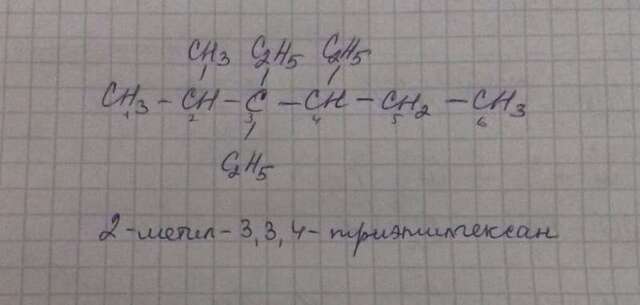 CH3 C2H5 C2H5
CH3 - CH - C - CH - CH2 - CH3
1 2 3 4 5 6
C2H5
2-метил-3,3,4-триэтилгексан